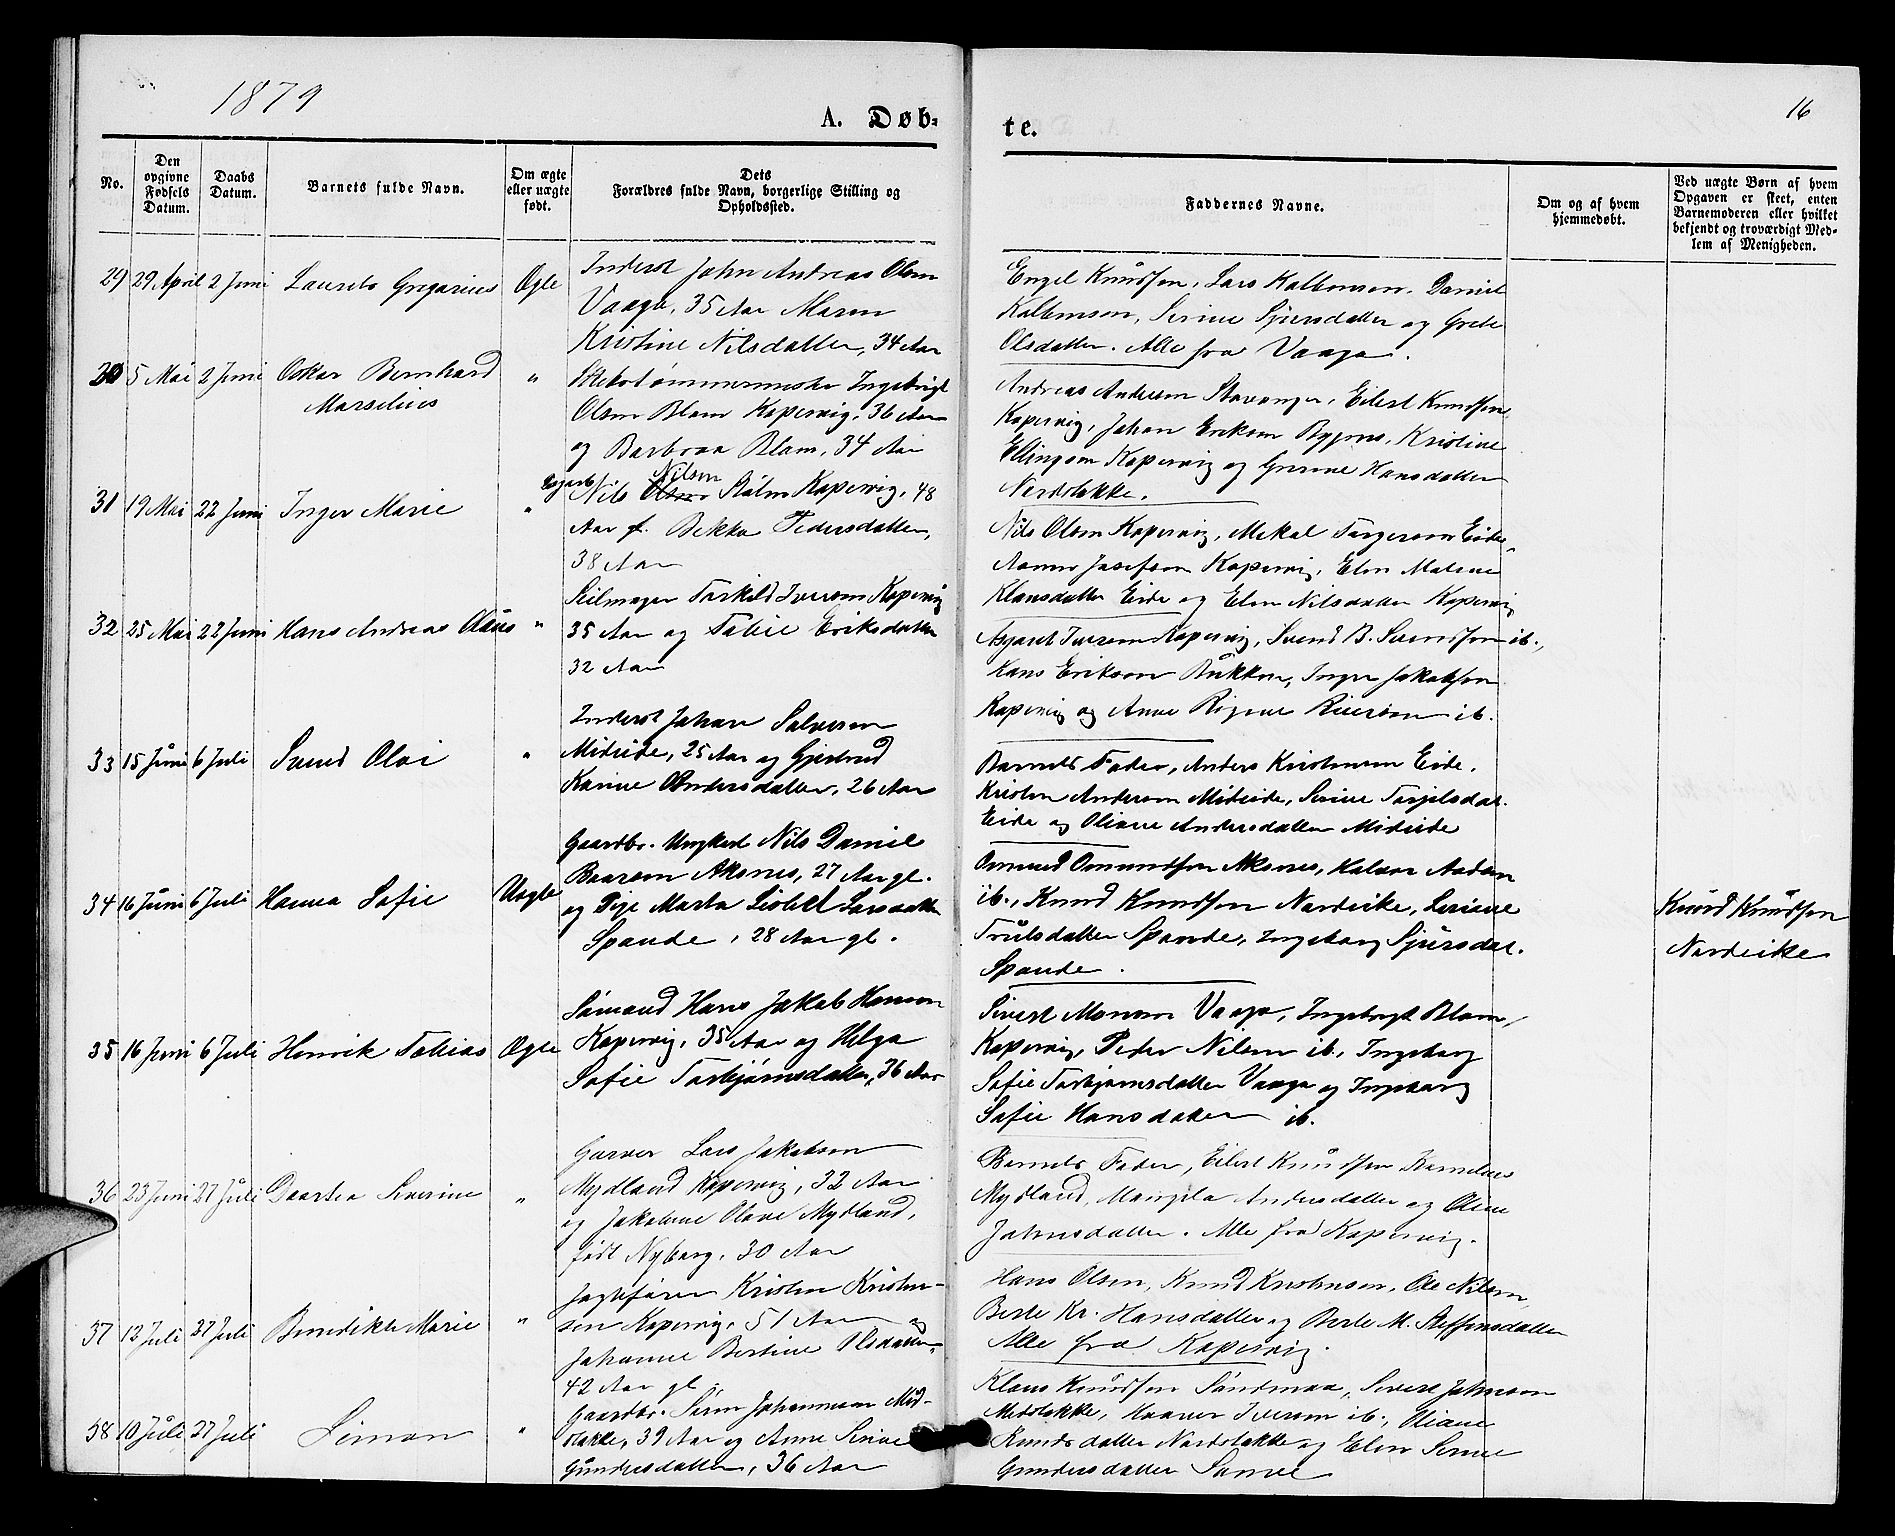 1879
16
A. Døb-
te.
No.
Den
opgivne
Fødsels
Datum.
Daabs
Datum.
Barnets fulde Navn.
Om ægte
eller uægte
født.
Dets
Forældres fulde Navn, borgerlige Stilling og
Opholdssted.
Faddernes Navne.
Om og af hvem
hjemmedøbt.
Ved uægte Børn af hvem
Opgaven er skeet, enten
Barnemoderen eller hvilket
bekjendt og troværdigt Med-
lem af Menigheden.
29 29 April 2 Juni Laurits Gregarius Ægte
Inderst John Andreas Olsen
Vaage, 35 Aar Maren
Kristine Nilsdatter, 34 Aar
Engel Knudsen, Lars Kolbenson, Daniel
Kolbenson, Serine Sjursdatter og Grete
Olsdatter. Alle fra Vaage.
30 5 Mai 2 Juni Oskar Bernhard "
Marselius
Ingebrigt
Olsen Blom Kopervig, 36 Aar
og Barbroa Blom, 34 Aar
Andreas Andersen Stavanger, Eilert Knudsen
Kopervig, Johan Eriksen Bygnes, Kristine
Ellingsen Kopervig og Gurine Hansdatter
Nordstokke.
31 19 Mai 22 Juni Inger Marie "
Nils Nilsen Kopervig, 48
Aar f. Bekka Pedersdatter,
38 Aar
Nils Olsen Kopervig, Mikal Torgersen Eide,
Josefsen Kopervig, Elen Malene
Klausdatter Eide og Elen Nilsdatter Kopervig
32 25 Mai 22 Juni Hans Andreas Olaus "
Seilmager Torkild Iversen Kopervig
35 Aar og Tobie Eriksdatter
32 Aar
Asgaut Iversen Kopervig, Svend B. Svendsen ib.,
Hans Eriksen Inger Jakobsen
Kopervig og Anne Iversen ib.
33 15 Juni 6 Juli Svend Olai "
Inderst Johan Salvesen
Mideide, 25 Aar og Gjertrud
Karine Andersdatter, 26 Aar
Barnets Fader, Anders Kristensen Eide,
Kristen Andersen Mideide, Serine Torjelsdat.
Eide og Oliane Andersdatter Mideide
34 16 Juni 6 Juli Hanna Sofie Uægte
Gaardbr. Ungkarl Nils Daniel
Baarsen Aksnes, 27 Aar gl.
og Pige Marta Lisbet Larsdatter
Spande, 28 Aar gl.
Omund Omundsen Aksnes, Halvor
ib., Knud Knudsen Nordvike, Seriane
Trulsdatter Spande, Ingeborg Sjursdat.
Spande.
Knud Knudsen
Nordvike
35 16 Juni 6 Juli Henrik Tobias Ægte
Sømand Hans Jakob Hansen
Kopervig, 35 Aar og Helga
Sofie Torbjørnsdatter, 36 Aar
Sivert Monsen Vaage, Ingebrigt Blom,
Kopervig, Peder Nilsen ib., Ingeborg
Sofie Torbjørnsdatter Vaage og Ingeborg
Sofie Hansdatter ib.
36 23 Juni 27 Juli Daartea Severine "
Garver Lars Jakobsen
Mydland Kopervig, 32 Aar
og Jakobine Olave Mydland,
født Nyborg, 30 Aar
Barnets Fader, Eilert Knudsen, Kornelius
Mydland, Mangela Andersdatter og Oline
Johnsdatter. Alle fra Kopervig.
37 12 Juli 27 Juli Benedikte Marie "
Jagtfører Kristen Kristen-
sen Kopervig, 51 Aar og
Johanne Bertine Olsdatter,
42 Aar gl.
Hans Olsen, Knud Kristensen, Ole Nilsen,
Berte Kr. Hansdatter og Berte M. Steffensdatter
Alle fra Kopervig.
38 10 Juli 27 Juli Simon "
Gaardbr. Søren Johannesen Mid-
stokke, 39 Aar og Anne Serine
Gundersdatter, 36 Aar
Klaus Knudsen Sivert Johnsen
Medstokke, Haaver Iversen ib., Oliane
Knudsdatter Nordstokke og Elen Serine
Gundersdatter